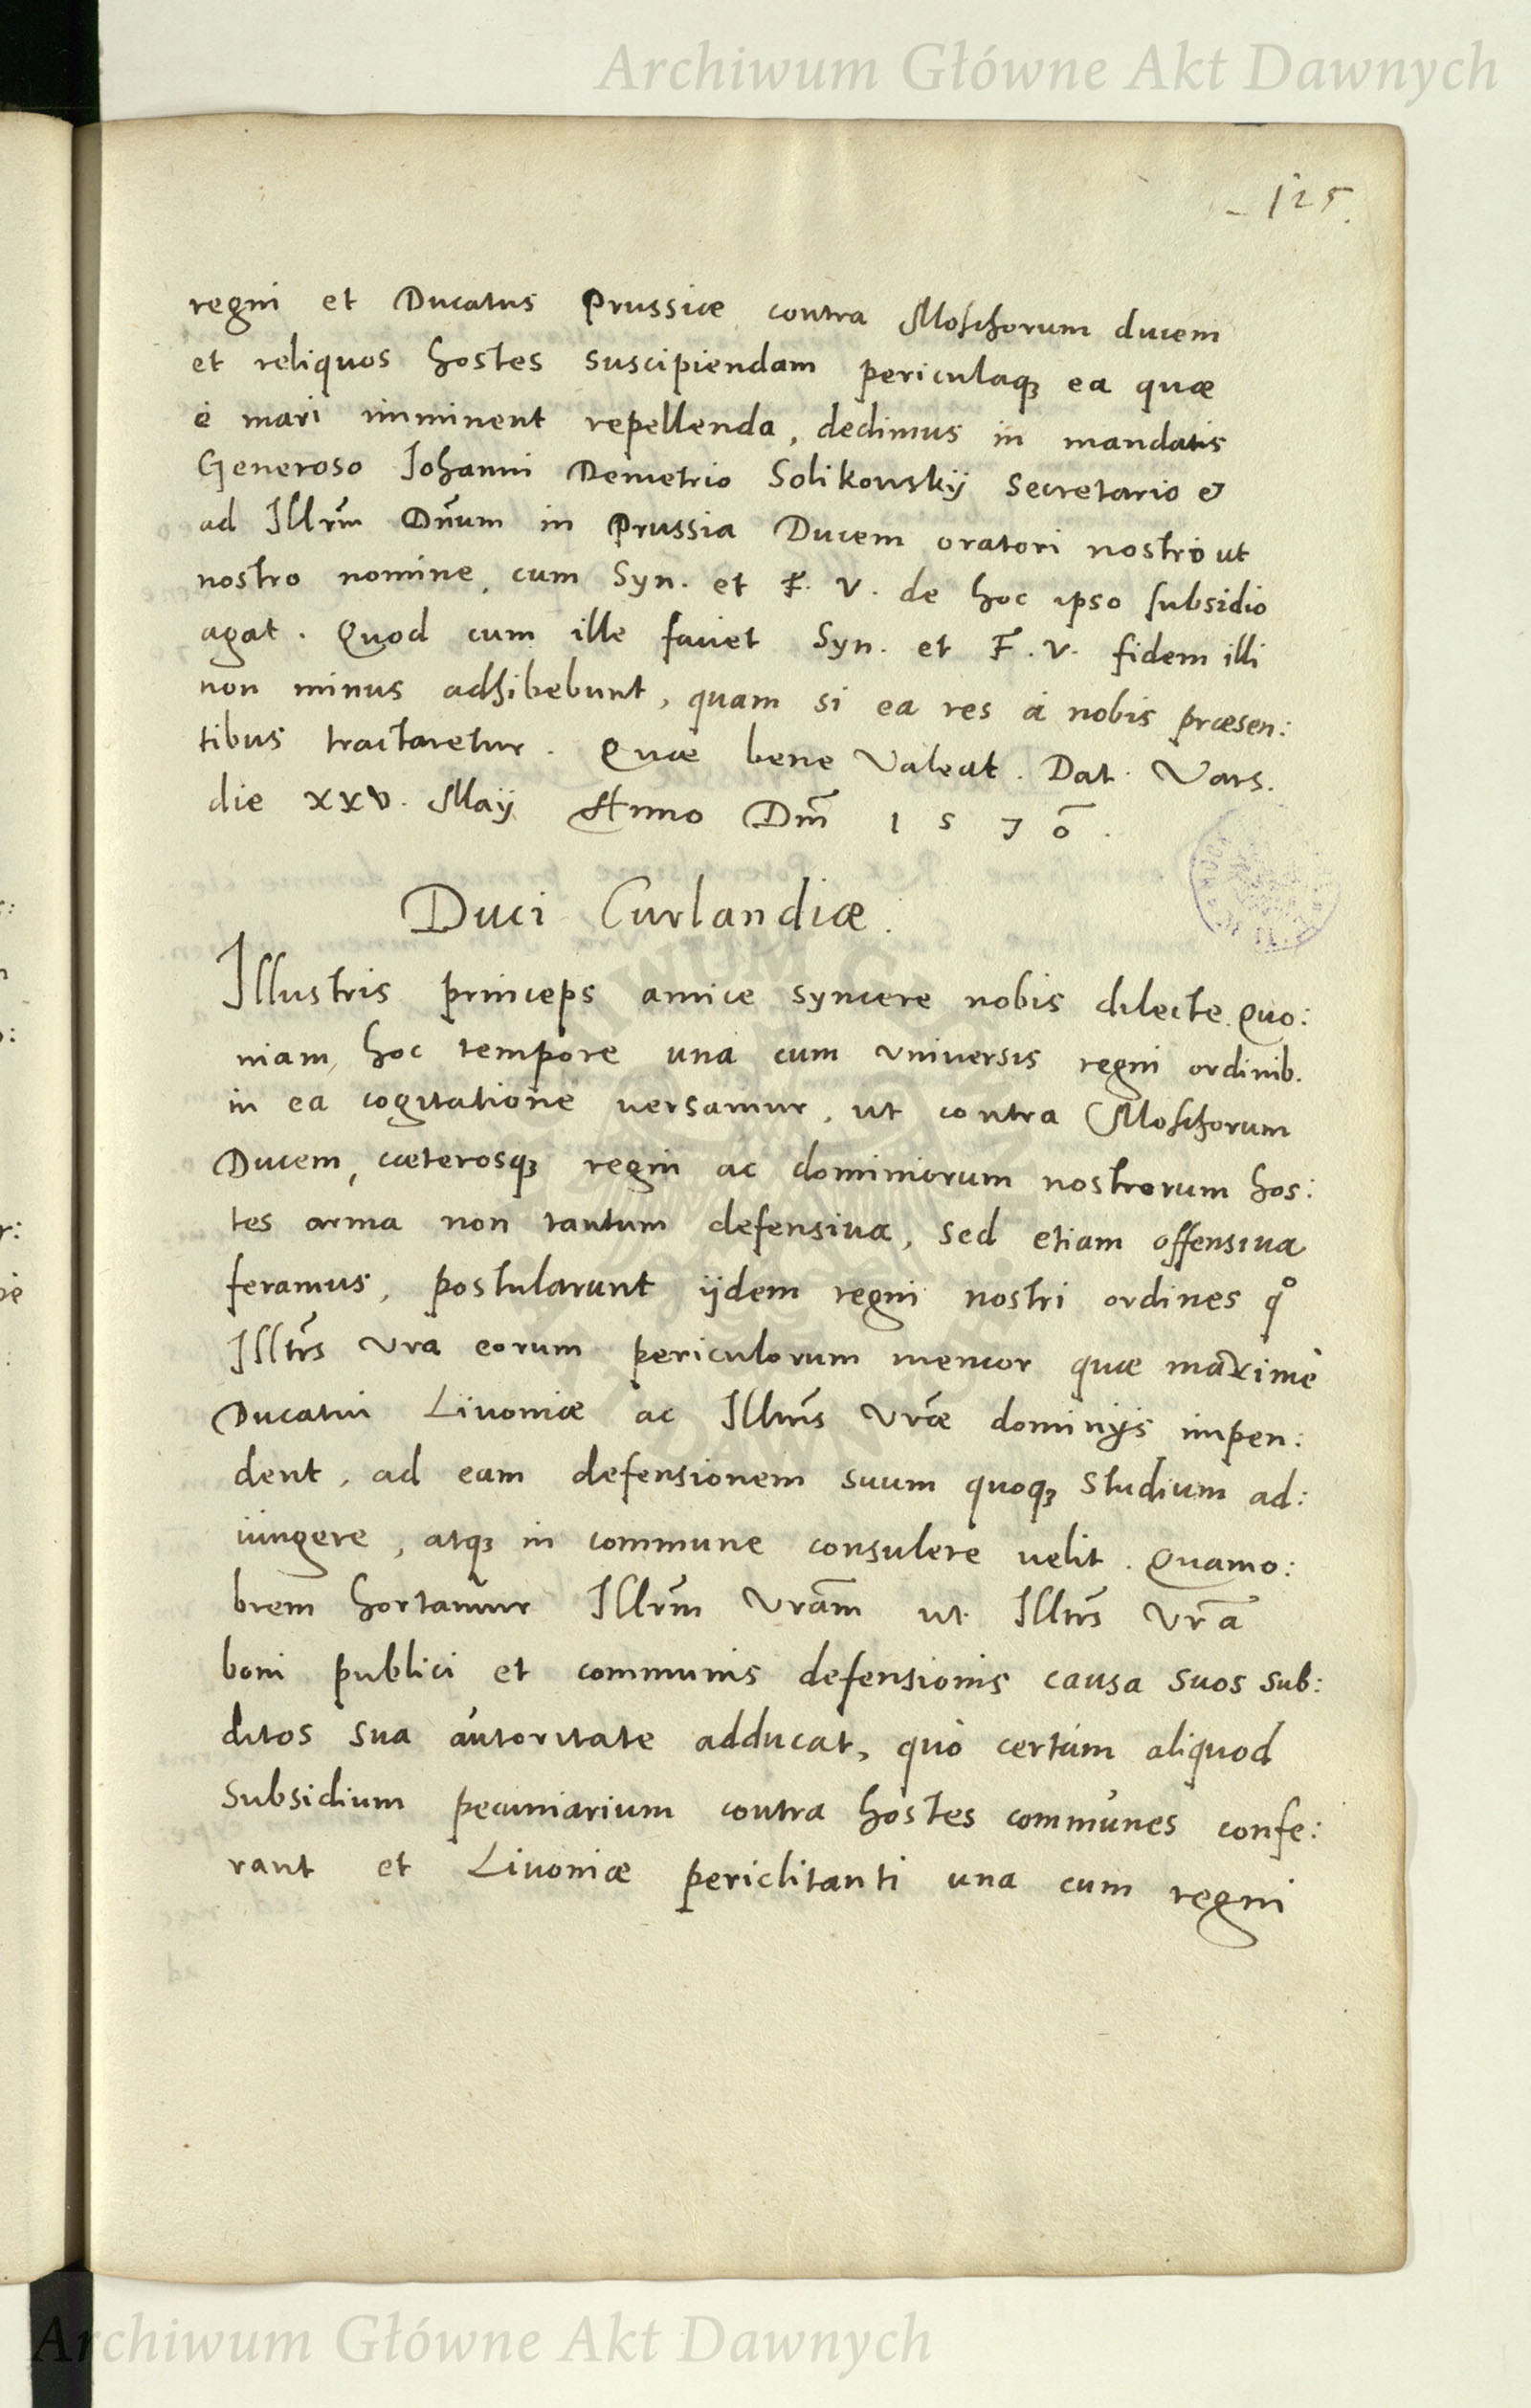 Archiwum Główne Akt Dawnych
125.
regni et Ducatus Prussiæ contra Moschorum ducem
et reliquos hostes suscipiendam periculaqȝ ea quæ
è mari imminent repellenda, dedimus in mandatis
Generoso Iohanni Demetrio Solikowskÿ Secretario &
ad Illrm̃ Dñum in Prussia Ducem oratori nostro ut
nostro nomine, cum Syn. et F. V. de hoc ipso subsidio
agat. Quod cum ille faciet Syn. et F. V. fidem illi
non minus adhibebunt, quam si ea res à nobis præsen:
tibus tractaretur. Quæ bene Valeat. Dat. Vars.
die XXV. Maÿ Anno Dm̃ 1570.
Duci Curlandiæ.
Illustris princeps amice syncere nobis dilecte. Quo:
niam hoc tempore una cum universis regni ordinib.
in ea cogitatione uersamur, ut contra Moschorum
Ducem, cæterosqȝ regni ac dominiorum nostrorum hos:
tes arma non tantum defensiua, sed etiam offensiua
feramus, postularunt ijdem regni nostri ordines qº
Illtrs̃ Vra eorum periculorum memor quæ maximè
Ducatui Liuoniæ ac Illtris̃ Vrãe dominÿs impen:
dent, ad eam defensionem suum quoqȝ studium ad:
iungere, atqȝ in commune consulere uelit. Quamo:
brem hortamur Illrm̃ Vram̃ ut Illtrs̃ Vrã
boni publici et communis defensionis causa suos sub:
ditos sua autoritate adducat, quò certum aliquod
subsidium pecuniarium contra hostes communes confe:
rant et Liuoniæ periclitanti una cum regni
Archiwum Główne Akt Dawnych